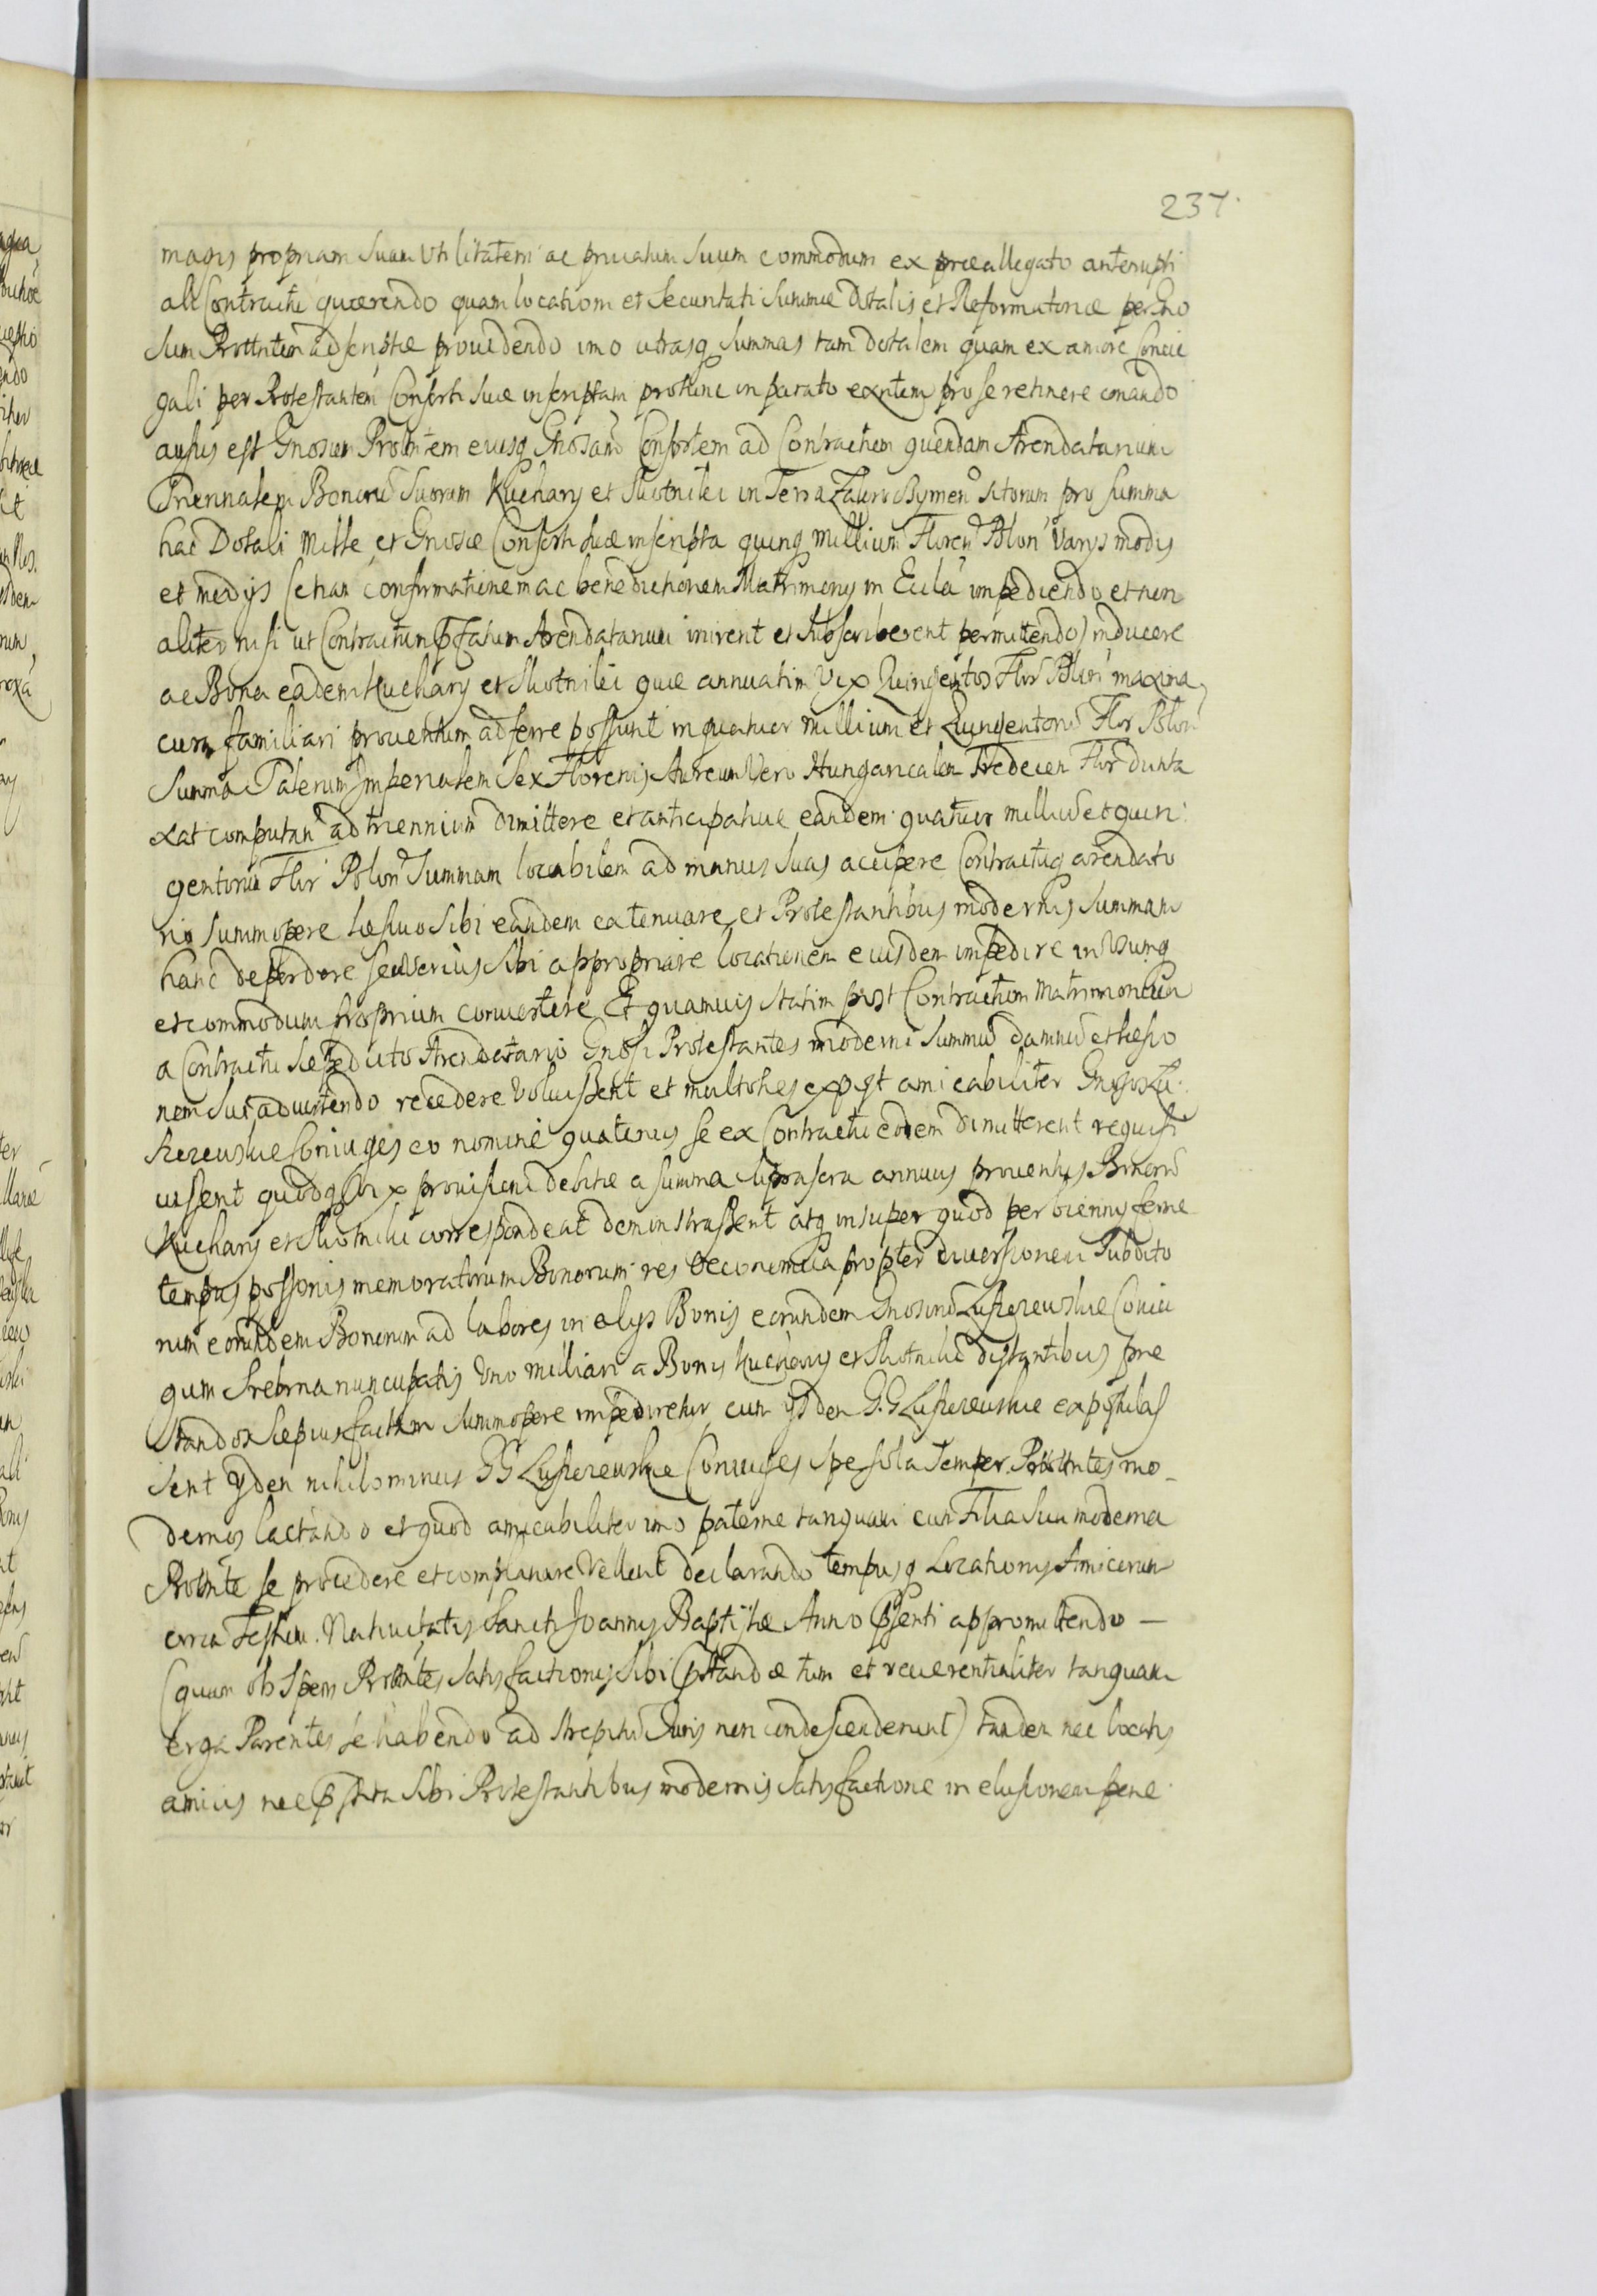 237.
magis propriam suam Utilitatem ac privatum suum commodum ex præallegato antenupti
ali Contractu quærendo quam locationi et securitati summæ Dotalis et Reformatoriæ per Gno
sum Prottntem adscriptæ providendo imo utrasq summas tam dotalem quam ex amore Coniu
gali per Protestantem Consorti suæ inscriptam protunc in parato exntem pro se retinere conando
ausus est Gnosum Protntem eiusq Gnosam Consortem ad Contractum quendam Arendatarium
Triennalem Bonorũ suorum Kuchary et Skotniki in Terra Zakroczymen sitorum pro summa
hac Dotali Mille et Gnosæ Consorti suæ inscripta quinq Millium Floren Polon Varys modis
et medys (etiam confirmationem ac benedictionem Matrimony in Eccla impediendo et non
aliter nisi ut Contractum pfatum Arendatarium inirent et subscriberent permittendo) inducere
ac Bona eadem Kuchary et Skotniki quæ annuatim Vix Quingentos Flor Polon maxima
cum familiari proventum adferre possunt in quatuor millium et Quingentorũ Flor Polon
Summa Talerum Imperialem Sex Florenis Aureum Vero Hungaricalem Tredecem Flor dunta
xat computan ad triennium dimittere et anticipative eandem quatuor milliũ et quin
gentorum Flor Polon Summam locabilem ad manus suas accipere Contractuq arendato
rio summopere læsivo sibi eandem extenuare et Protestantibus modernis Summam
hanc deperdere seu Verius sibi appropriare locationem eiusdem impedire in Usumq
et commodum proprium convertere Et quamvis statim post Contractum Matrimonialem
a Contractu sic edicto Arendatario Gnosi Protestantes moderni summũ damnũ et læsio
nem sui advertendo recedere Voluissent et multoties expost amicabiliter Gnosos Lu
szczewskie Coniuges eo nomine quatenus se ex Contractu eodem dimitterent requisi
vissent quodq Vix provisioni debitæ a summa suprascra annuus proventus Bonorũ
Kuchary et Skotniki correspondeat demonstrassent atq insuper quod per bienny ferme
tempus possonis memoratorum Bonorum res oeconomica propter diversionem Subdito
rum eorundem Bonorum ad labores in alys Bonis eorundem Gnosorũ Luszczewskie Coniu
gum Srebrna nuncupatis Uno milliari a Bonis Kuchary et Skotniki distantibus præ
standos sæpius factam summopere impediretur cum ysdem G.G Luszczewskie expostulas
sent Ydem nihilominus GG Luszczewskie Coniuges spe sola semper Protntes mo-
dernos lactando et quod amicabiliter imo paterne tanquam cum Filia sua moderna
Protnte se procedere et complanare Vellent declarando tempusq Locationis Amicorum
circa Festum Nativitatis Sancti Joannis Baptistæ Anno pnti appromittendo —
(quam ob spem Protntes satisfactionis sibi pstandæ tum et reverentialiter tanquam
erga Parentes se habendo ad strepitũ Juris non condescenderunt) tandem nec locatis
amicis nec pstita sibi Protestantibus modernis satisfactione in elusionem pene